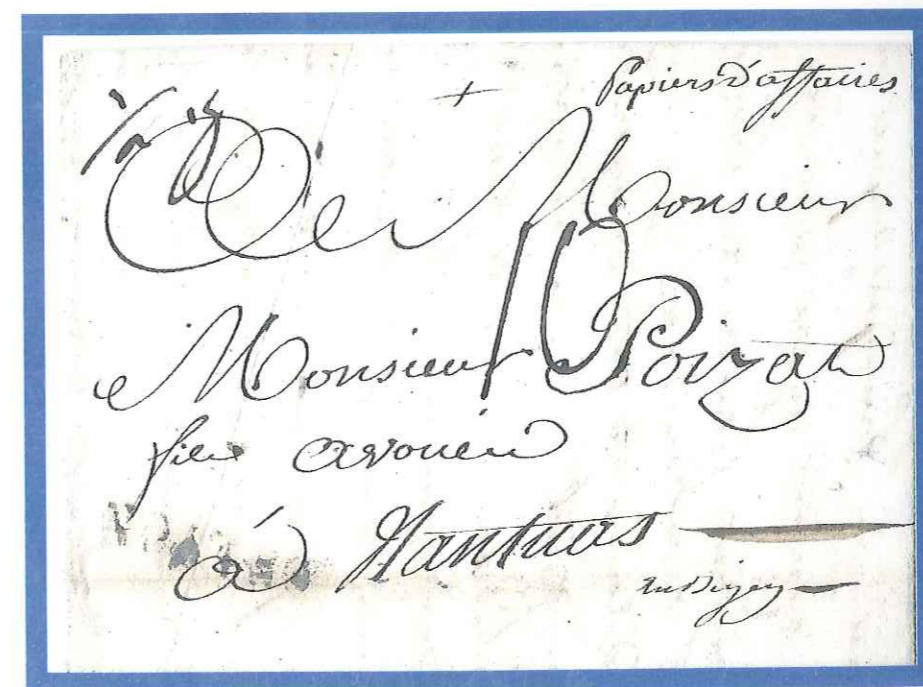 + Papiers d'affaires
A Monsieur
Monsieur Poizat
fils avoué
à Nantuas
en Bugey